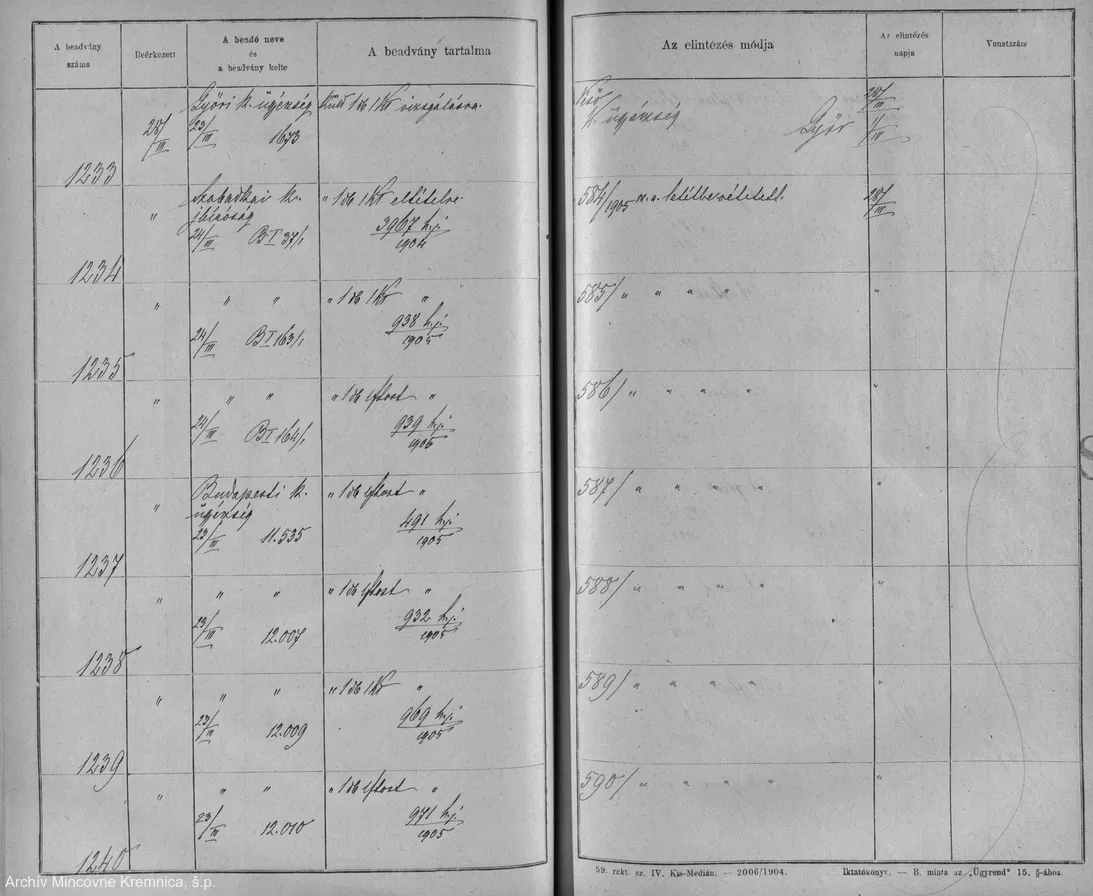 A beadvány száma
Beérkezett
A beadó neve és a beadvány kelte
A beadvány tartalma
Az elintézés módja
Az elintézés napja
Vonatszám
Győri k. ügyészség
Küld 1 db 1 Kr vizsgálásra.
28/III
23/III 1673
1233
k. ügyészség
Győr
28/III
1/IV
Szabadkai k.
" 1 db 1 Kr eltételre
"
3967
1904
24/III B I 37/1
1234
584/1905
28/III
" " "
" 1 db 1 Kr "
24/III B I 163/1
938
1905
1235
585/ " " " "
"
" " "
" 1 db "
24/III B I 164/1
939
1905
1236
586/ " " " "
"
Budapesti k.
ügyészség
" 1 db "
"
23/III 11.535
491
1905
1237
587/ " " " "
"
" " "
" 1 db "
23/III 12.007
932
1905
1238
588/ " " " "
"
" " "
" 1 db 1 Kr "
23/III 12.009
969
1905
1239
589/ " " " "
"
" " "
" 1 db "
23/III 12.010
971
1905
1240
590/ " " " "
"
59. rakt. sz. IV. Kis-Medián. — 2006/1904.
Iktatókönyv. — B. minta az „Ügyrend" 15. §-ához.
Archív Mincovne Kremnica, š.p.